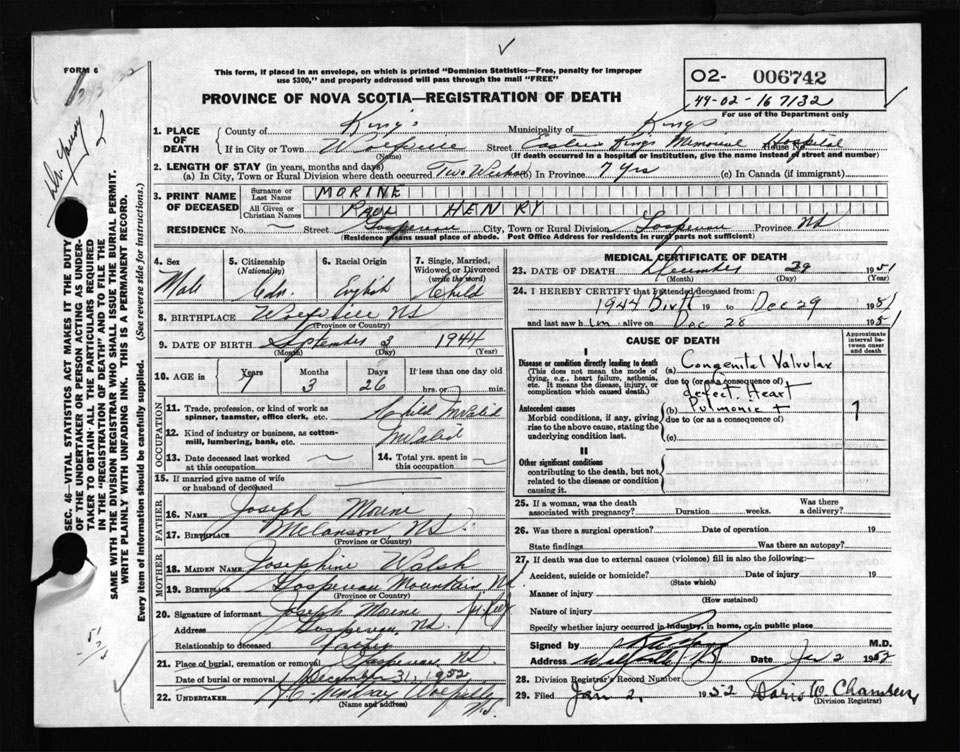 FORM 6
This form, if placed in an envelope, on which is printed "Dominion Statistics—Free, penalty for improper
use $300," and properly addressed will pass through the mail "FREE"
O2- 006742
49-02-167132
For use of the Department only
PROVINCE OF NOVA SCOTIA—REGISTRATION OF DEATH
1. PLACE OF DEATH
County of King's Municipality of Kings
If in City or Town Wolfville Street Eastern Kings Memorial Hospital House No.
(Name) (If death occurred in a hospital or institution, give the name instead of street and number)
2. LENGTH OF STAY (in years, months and days)
(a) In City, Town or Rural Division where death occurred Two Weeks (b) In Province 7 yrs (c) In Canada (if immigrant)
3. PRINT NAME OF DECEASED
Surname or Last Name MORINE
All Given or Christian Names HENRY
RESIDENCE No. — Street Gaspereau City, Town or Rural Division Gaspereau Province NS
(Residence means usual place of abode. Post Office Address for residents in rural parts not sufficient)
4. Sex Male
5. Citizenship (Nationality) Cdn.
6. Racial Origin English
7. Single, Married, Widowed or Divorced (write the word) Child
8. BIRTHPLACE Wolfville NS
(Province or Country)
9. DATE OF BIRTH September 3 1944
(Month) (Day) (Year)
10. AGE in Years 7 Months 3 Days 26 If less than one day old hrs. or min.
OCCUPATION
11. Trade, profession, or kind of work as spinner, teamster, office clerk, etc. Child Invalid
12. Kind of industry or business, as cotton-mill, lumbering, bank, etc. Invalid
13. Date deceased last worked at this occupation —
14. Total yrs. spent in this occupation —
15. If married give name of wife or husband of deceased
FATHER
16. NAME Joseph Morine
17. BIRTHPLACE Melanson NS.
(Province or Country)
MOTHER
18. MAIDEN NAME Josephine Walsh
19. BIRTHPLACE Gaspereau Mountain NS
(Province or Country)
20. Signature of informant Joseph Morine
Address Gaspereau, NS.
Relationship to deceased Father
21. Place of burial, cremation or removal Gaspereau NS.
Date of burial or removal December 31, 1952
22. UNDERTAKER Lindsay Wolfville N.S.
(Name and address)
MEDICAL CERTIFICATE OF DEATH
23. DATE OF DEATH December 29 1951
(Month) (Day)
24. I HEREBY CERTIFY that I attended deceased from:
1944 Birth 19 to Dec 29 1951
and last saw him alive on Dec 28 1951
CAUSE OF DEATH
Approximate interval between onset and death
I
Disease or condition directly leading to death
(This does not mean the mode of dying, e.g., heart failure, asthenia, etc. It means the disease, injury, or complication which caused death.)
(a) Congenital Valvular
due to (or as a consequence of)
defect. Heart
Antecedent causes
Morbid conditions, if any, giving rise to the above cause, stating the underlying condition last.
(b) Pulmonic
due to (or as a consequence of)
(c)
7
II
Other significant conditions
contributing to the death, but not related to the disease or condition causing it.
25. If a woman, was the death associated with pregnancy? Duration weeks. Was there a delivery?
26. Was there a surgical operation? Date of operation 19
State findings Was there an autopsy?
27. If death was due to external causes (violence) fill in also the following:
Accident, suicide or homicide? Date of injury 19
(State which)
Manner of injury
(How sustained)
Nature of injury
Specify whether injury occurred in industry, in home, or in public place
Signed by M.D.
Address Wolfville Date Jan 2 1952
28. Division Registrar's Record Number
29. Filed Jan 2, 1952 Doris W.
(Division Registrar)
SEC. 46—VITAL STATISTICS ACT MAKES IT THE DUTY
OF THE UNDERTAKER OR PERSON ACTING AS UNDER-
TAKER TO OBTAIN ALL THE PARTICULARS REQUIRED
IN THE "REGISTRATION OF DEATH" AND TO FILE THE
SAME WITH THE DIVISION REGISTRAR WHO SHALL ISSUE THE BURIAL PERMIT.
WRITE PLAINLY WITH UNFADING INK. THIS IS A PERMANENT RECORD.
Every item of information should be carefully supplied. (See reverse side for instructions.)